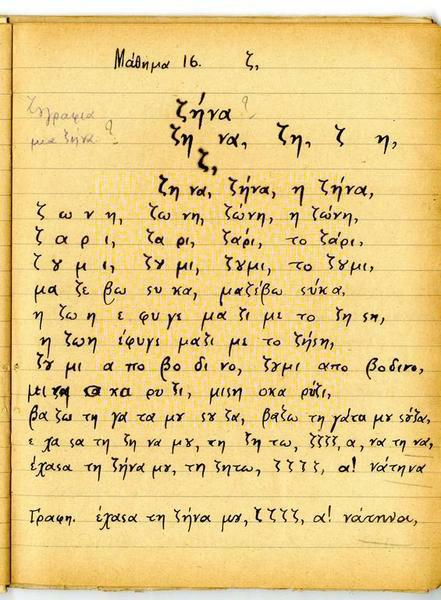 Μάθημα 16. ζ,
ζήνα ?
μια ζήνα ?
ζη να, ζη, ζ η,
ζ,
ζη να, ζήνα, η ζήνα,
ζ ω ν η, ζω νη, ζώνη, η ζώνη,
ζ α ρ ι, ζα ρι, ζάρι, το ζάρι,
ζ ȣ μ ι, ζȣ μι, ζȣμι, το ζȣμι,
μα ζε βω ςυ κα, μαζέβω ςύκα,
η ζω η ε φυ γε μα ζι με το ζη ςη,
η ζωη έφυγε μαζι με το ζήςη,
ζȣ μι α πο βο δι νο, ζȣμι απο βοδινο,
μι ςη ο κα ρυ ζι, μιςη οκα ρύζι,
βα ζω τη γα τα μȣ ςȣ ζα, βάζω τη γάτα μȣ ςȣζα,
ε χα ςα τη ζη να μȣ, τη ζη τω, ζζζζ, α, να τη να,
έχαςα τη ζήνα μȣ, τη ζητω, ζ ζ ζ ζ, α! νάτηνα
Γραφη. έχαςα τη ζήνα μȣ, ζ ζ ζ ζ, α! νάτηνα,